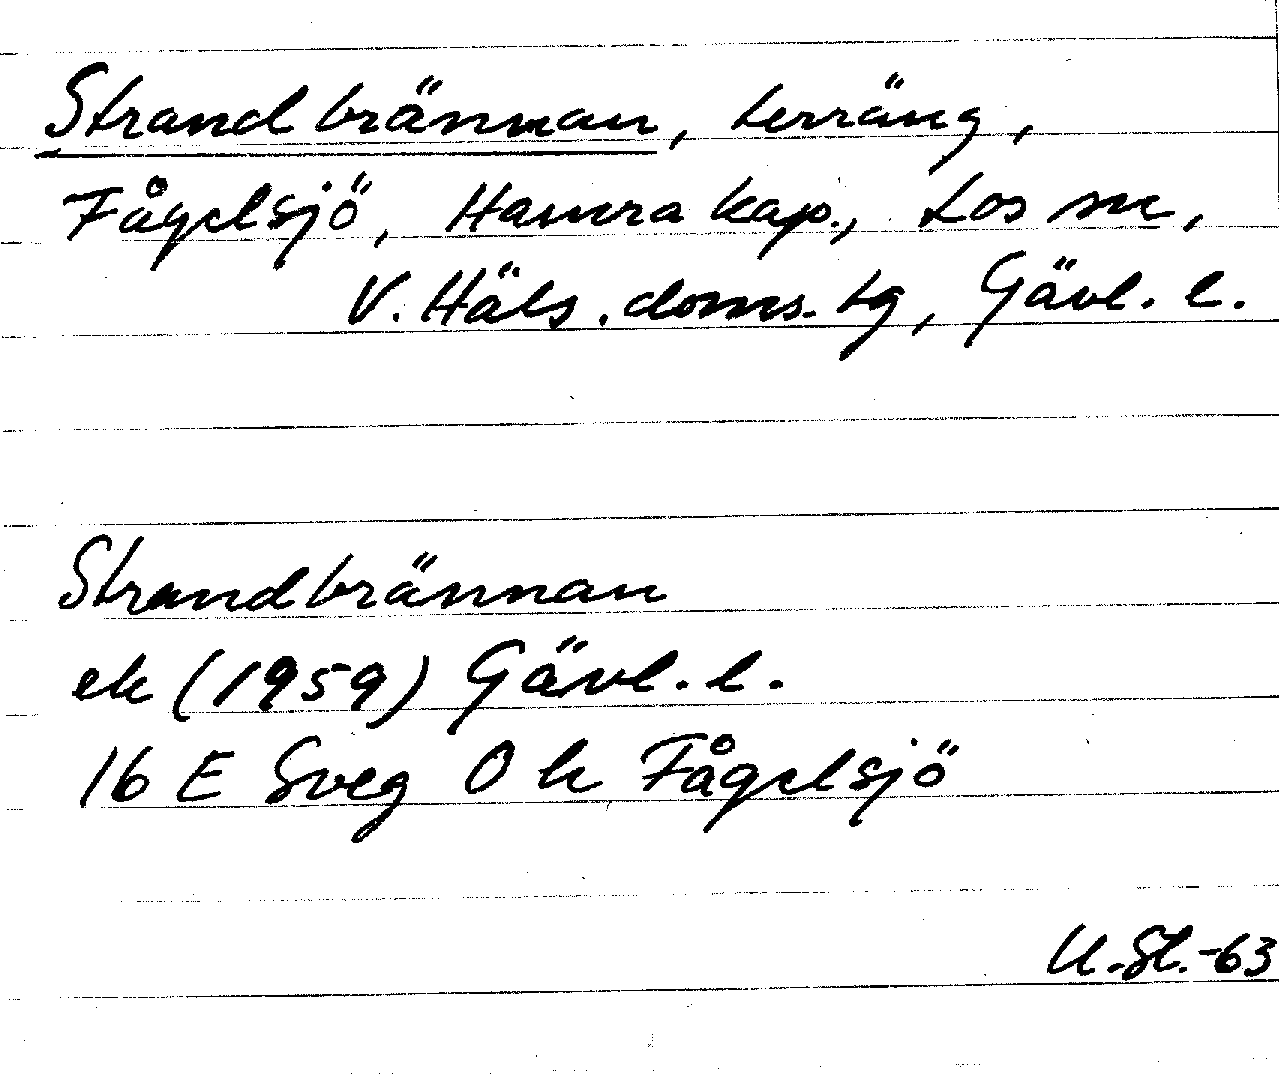 Strandbrännan, terräng,
Fågelsjö, Hamra kap., Los sn,
V. Häls. doms. tg, Gävl. l.
Strandbrännan
ek (1959) Gävl. l.
16 E Sveg O k Fågelsjö
U.St.-63